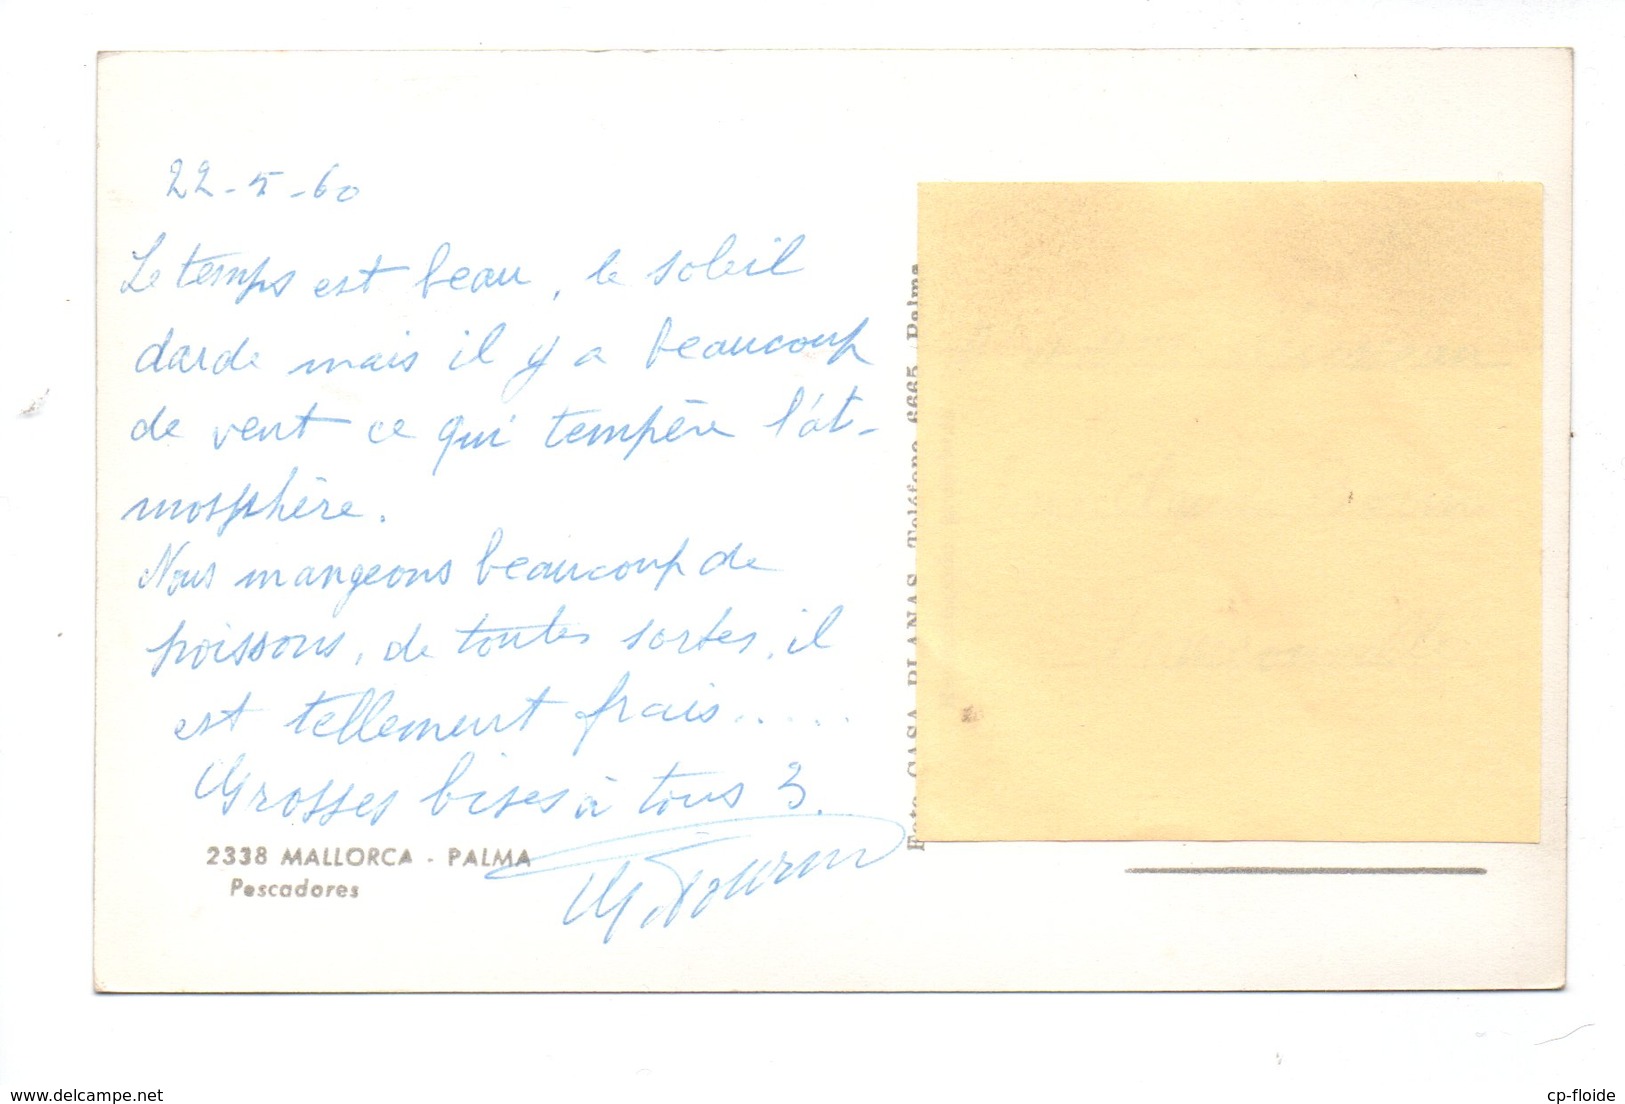 22-5-60
Le temps est beau, le soleil
darde mais il y a beaucoup
de vent ce qui tempère l'at-
mosphère.
Nous mangeons beaucoup de
poissons, de toutes sortes, il
est tellement frais.....
Grosses bises à tous 3.
2338 MALLORCA - PALMA
Pescadores
Foto CASA PLANAS Teléfono 6665 Palma
delcampe.net
cp-floide